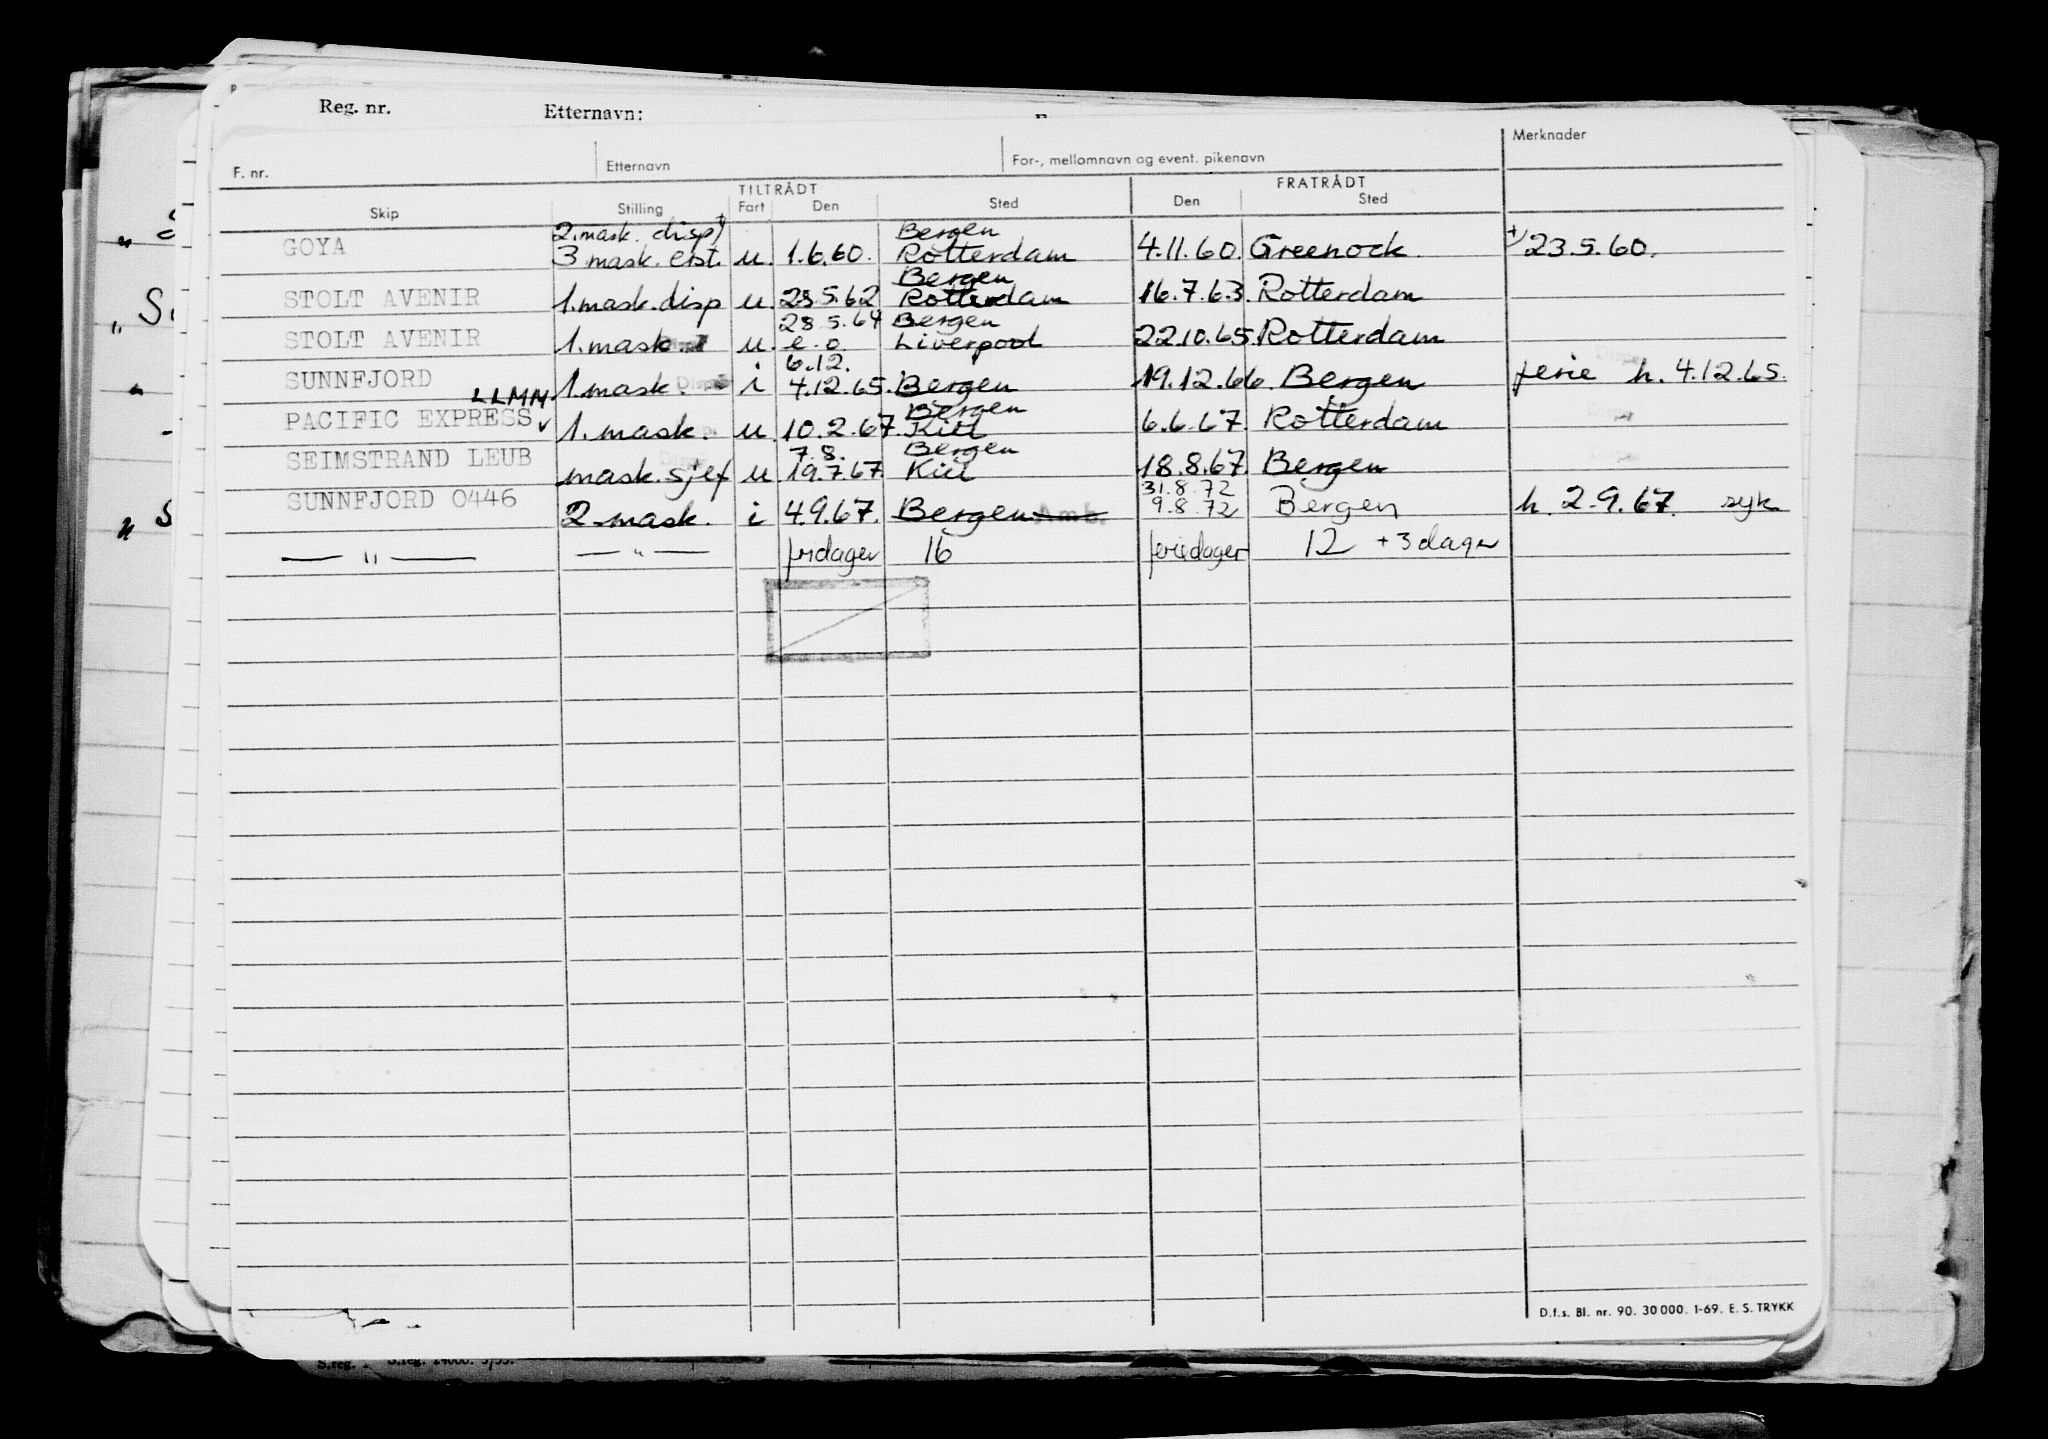 Reg. nr. Etternavn:
F. nr. Etternavn For-, mellomnavn og event. pikenavn Merknader
TILTRÅDT FRATRÅDT
Skip Stilling Fart Den Sted Den Sted
2. mask. disp + Bergen
GOYA 3 mask. erst. u. 1.6.60. Rotterdam 4.11.60. Greenock. +) 23.5.60.
Bergen
STOLT AVENIR 1. mask. disp u. 23.5.62 Rotterdam 16.7.63. Rotterdam
28.5.64 Bergen
STOLT AVENIR 1. mask. u. e.o. Liverpool 22.10.65. Rotterdam
6.12.
SUNNFJORD 1. mask. Disp i 4.12.65. Bergen 19.12.66. Bergen ferie h. 4.12.65.
LLMM Bergen
PACIFIC EXPRESS 1. mask. u. 10.2.67. Kiel 6.6.67. Rotterdam
7.8. Bergen
SEIMSTRAND LEUB mask. sjef u. 19.7.67. Kiel 18.8.67. Bergen
31.8.72
SUNNFJORD 0446 2. mask. i 4.9.67. Bergen Amb. 9.8.72 Bergen h. 2.9.67. syk
— " — — " — fridager 16 feriedager 12 + 3 dager
D.f.s. Bl. nr. 90. 30 000. 1-69. E. S. TRYKK
S.reg. S.reg. 24000. 5/55.